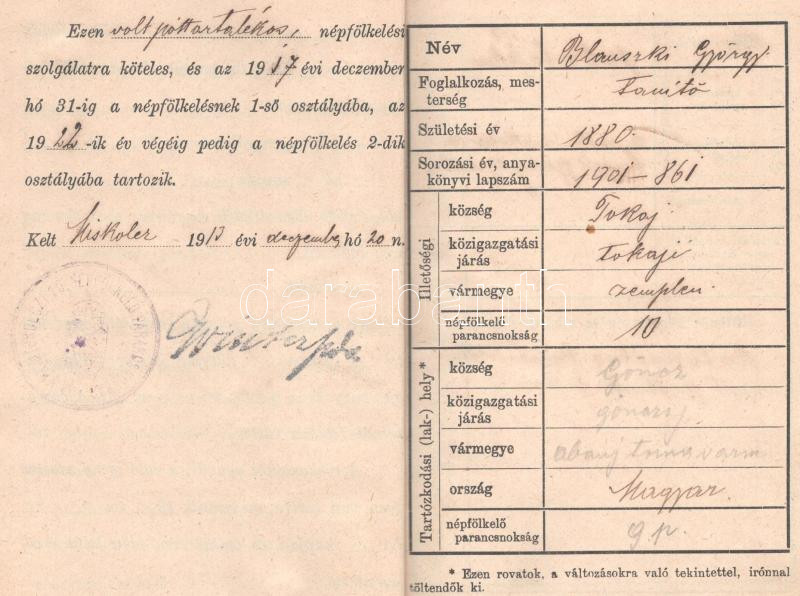 Ezen volt póttartalékos, népfölkelési
szolgálatra köteles, és az 1917 évi deczember
hó 31-ig a népfölkelésnek 1-ső osztályába, az
1922-ik év végéig pedig a népfölkelés 2-dik
osztályába tartozik.
Kelt Miskolcz 1913 évi deczember hó 20 n.
Név Blauszki György
Foglalkozás, mes-
terség Tanító
Születési év 1880.
Sorozási év, anya-
könyvi lapszám 1901-861
Illetőségi
község Tokaj
közigazgatási
járás tokaji
vármegye zemplén
népfölkelő
parancsnokság 10
Tartózkodási (lak-) hely *
község Göncz
közigazgatási
járás
vármegye
ország Magyar
népfölkelő
parancsnokság 9
* Ezen rovatok, a változásokra való tekintettel, irónnal
töltendők ki.
darabanth